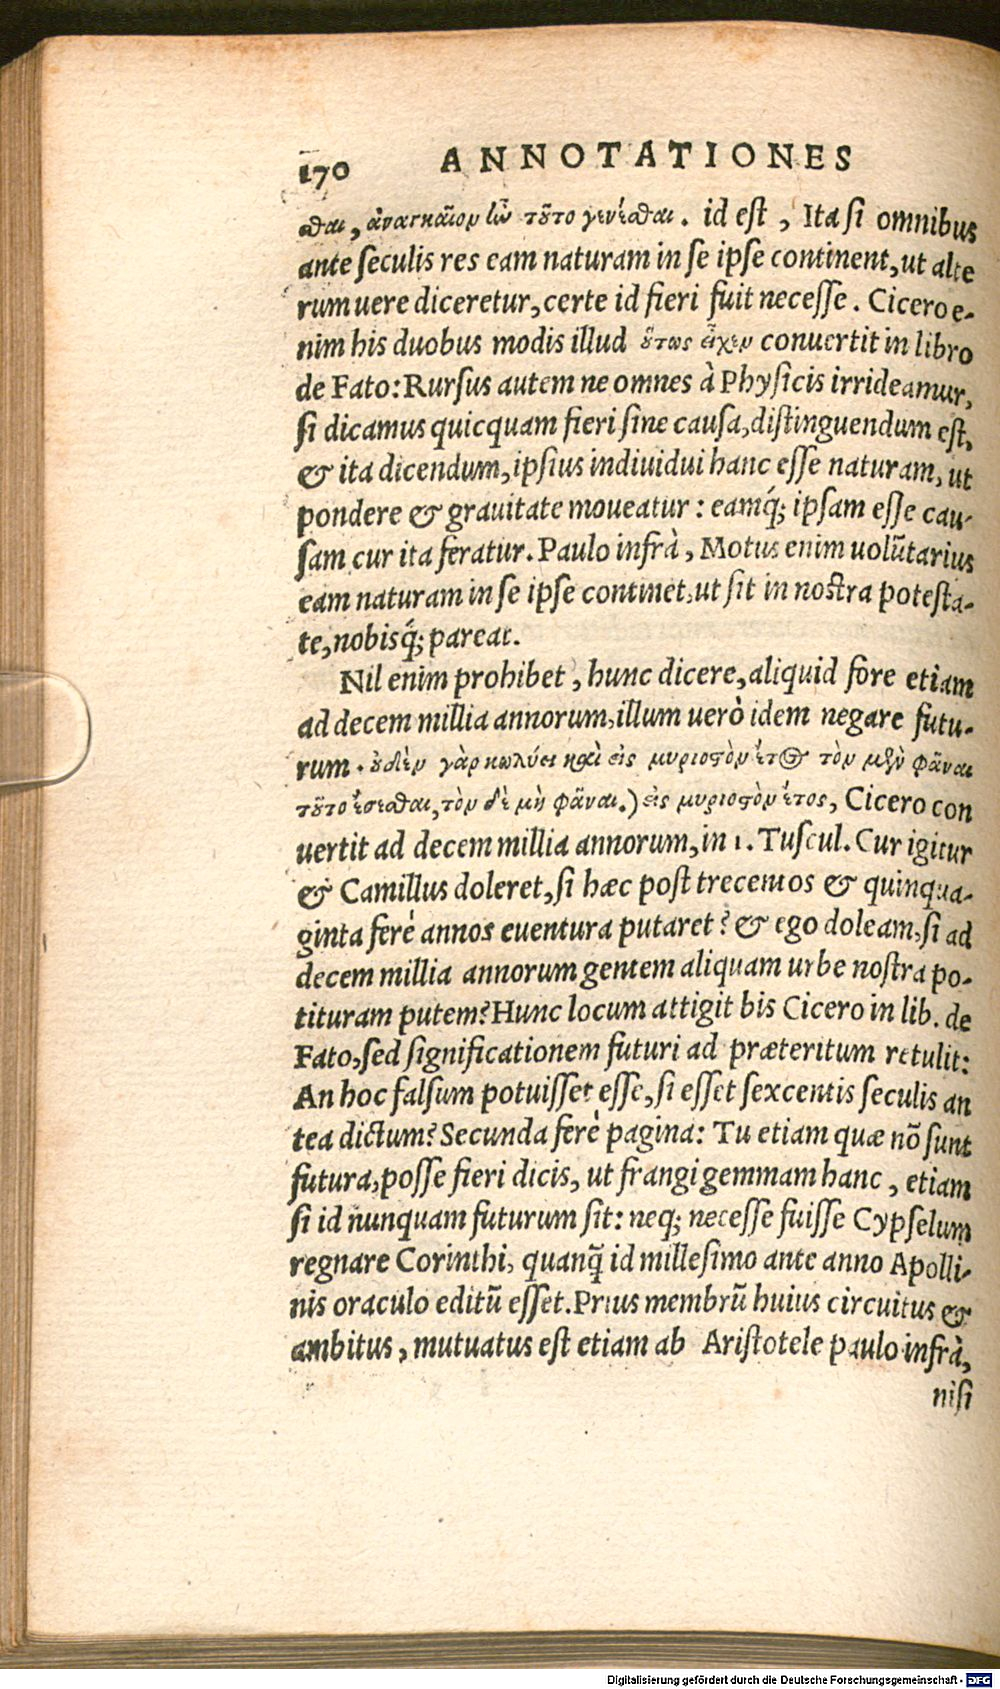 170 ANNOTATIONES
σθαι, ἀναγκαῖον ἦν τοῦτο γενέσθαι. id est, Ita si omnibus
ante seculis res eam naturam in se ipse continent, ut alte
rum uere diceretur, certe id fieri fuit necesse. Cicero e-
nim his duobus modis illud οὕτως εἶχεν conuertit in libro
de Fato: Rursus autem ne omnes à Physicis irrideamur,
si dicamus quicquam fieri sine causa, distinguendum est,
& ita dicendum, ipsius indiuidui hanc esse naturam, ut
pondere & grauitate moueatur: eamq́; ipsam esse cau-
sam cur ita feratur. Paulo infrà, Motus enim uolũtarius
eam naturam in se ipse continet, ut sit in nostra potesta-
te, nobisq́; pareat.
Nil enim prohibet, hunc dicere, aliquid fore etiam
ad decem millia annorum, illum uerò idem negare futu-
rum. οὐδὲν γὰρ κωλύει καὶ εἰς μυριοστὸν ἔτος τὸν μὲν φᾶναι
τοῦτο ἔσεσθαι, τὸν δὲ μὴ φᾶναι.) εἰς μυριοστὸν ἔτος, Cicero con
uertit ad decem millia annorum, in 1. Tuscul. Cur igitur
& Camillus doleret, si hæc post trecentos & quinqua-
ginta ferè annos euentura putaret? & ego doleam, si ad
decem millia annorum gentem aliquam urbe nostra po-
tituram putem? Hunc locum attigit bis Cicero in lib. de
Fato, sed significationem futuri ad præteritum retulit:
An hoc falsum potuisset esse, si esset sexcentis seculis an
tea dictum? Secunda ferè pagina: Tu etiam quæ nõ sunt
futura, posse fieri dicis, ut frangi gemmam hanc, etiam
si id nunquam futurum sit: neq; necesse fuisse Cypselum
regnare Corinthi, quanq̃ id millesimo ante anno Apolli-
nis oraculo editũ esset. Prius membrũ huius circuitus &
ambitus, mutuatus est etiam ab Aristotele paulo infrà,
nisi
Digitalisierung gefördert durch die Deutsche Forschungsgemeinschaft - DFG